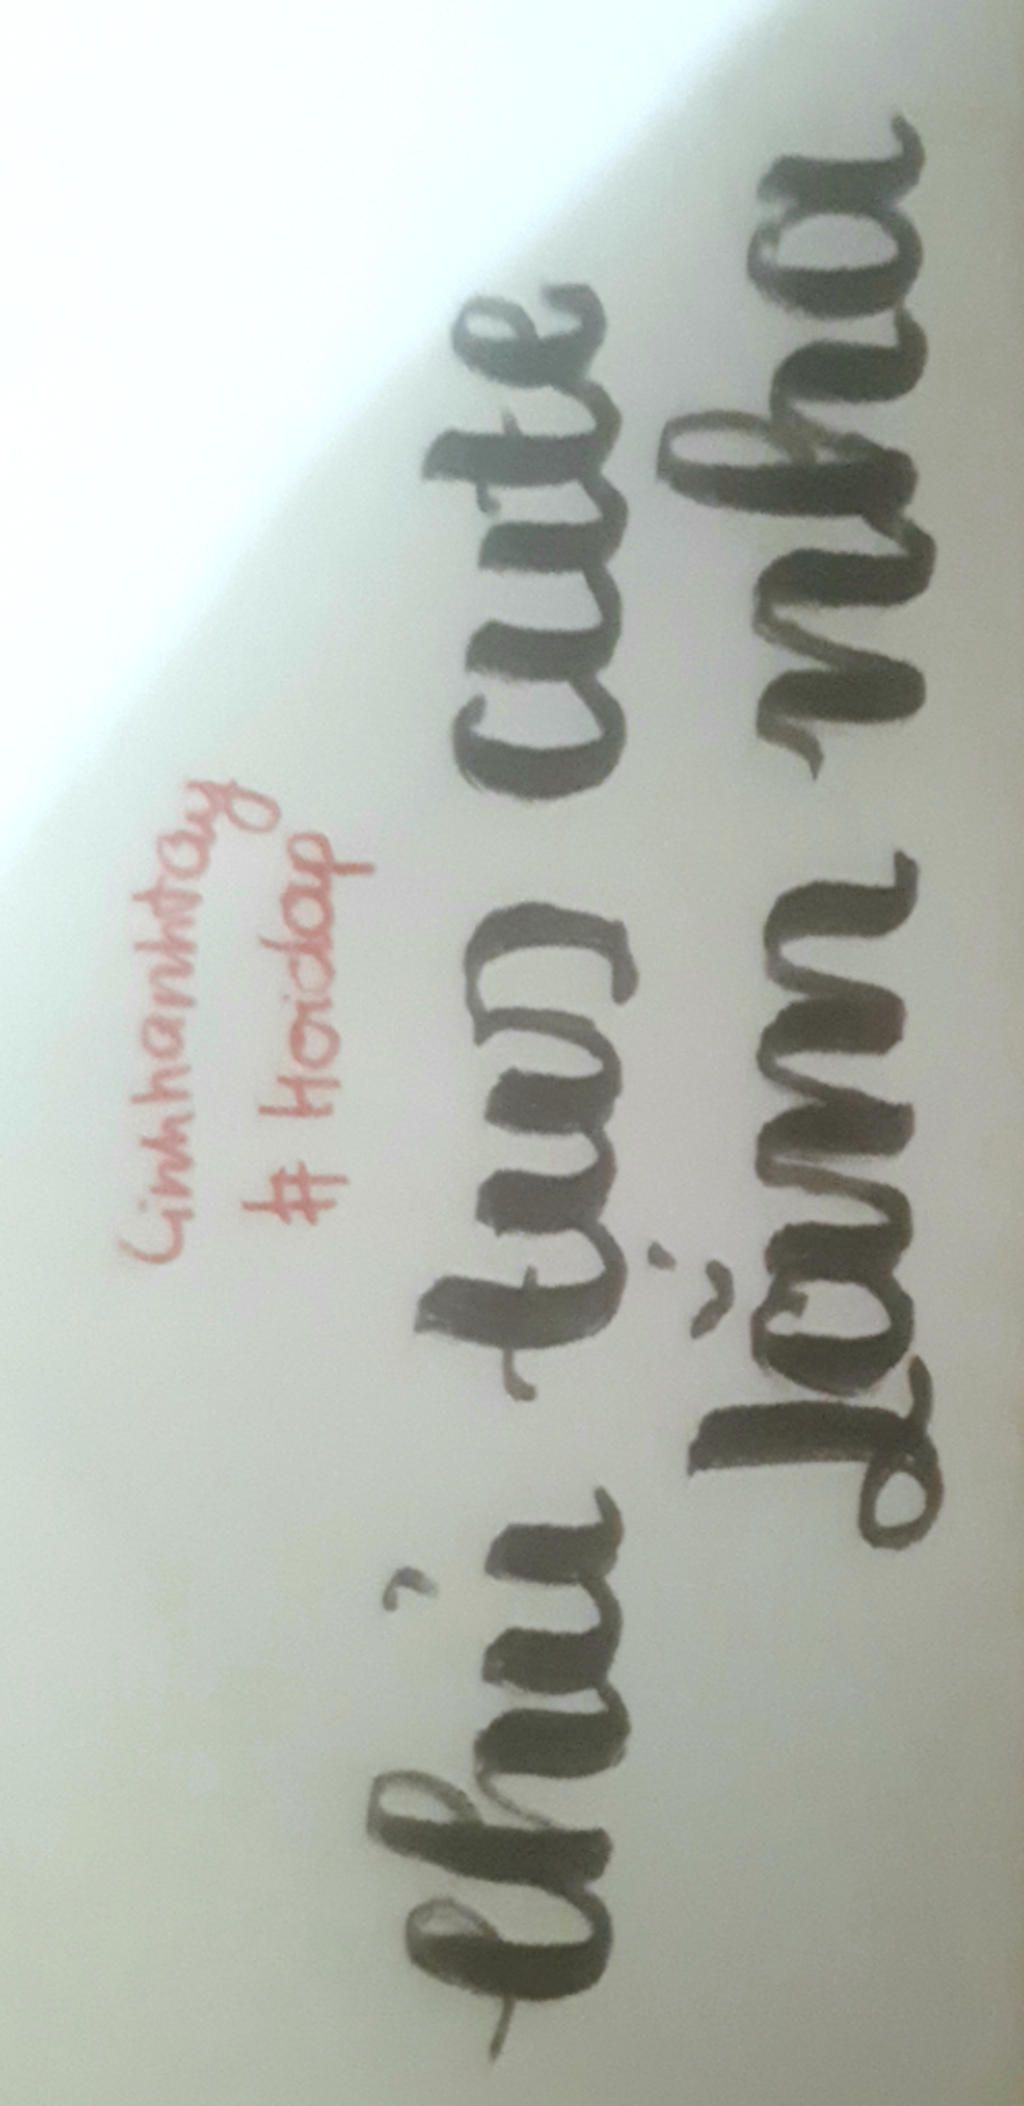 Linhhanhtay
# Hoidap
Chủ tus cute
lắm nha